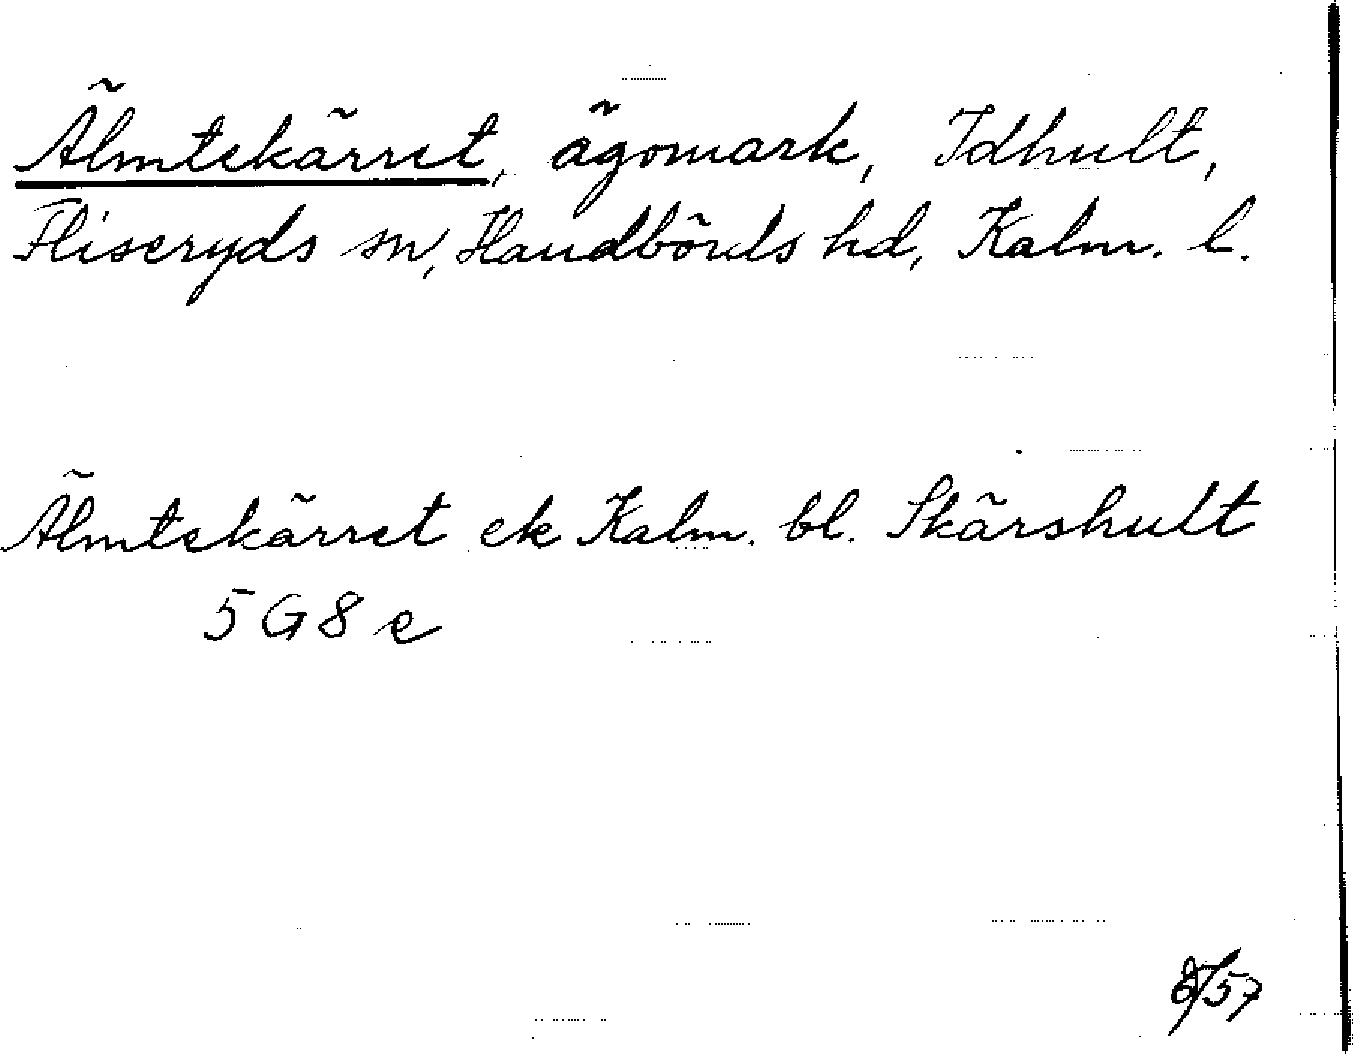 Älmtekärret, ägomark, Idhult,
Fliseryds sn, Handbörds hd, Kalm. l.
Älmtekärret ek Kalm. bl. Skärshult
5G8e
8/57